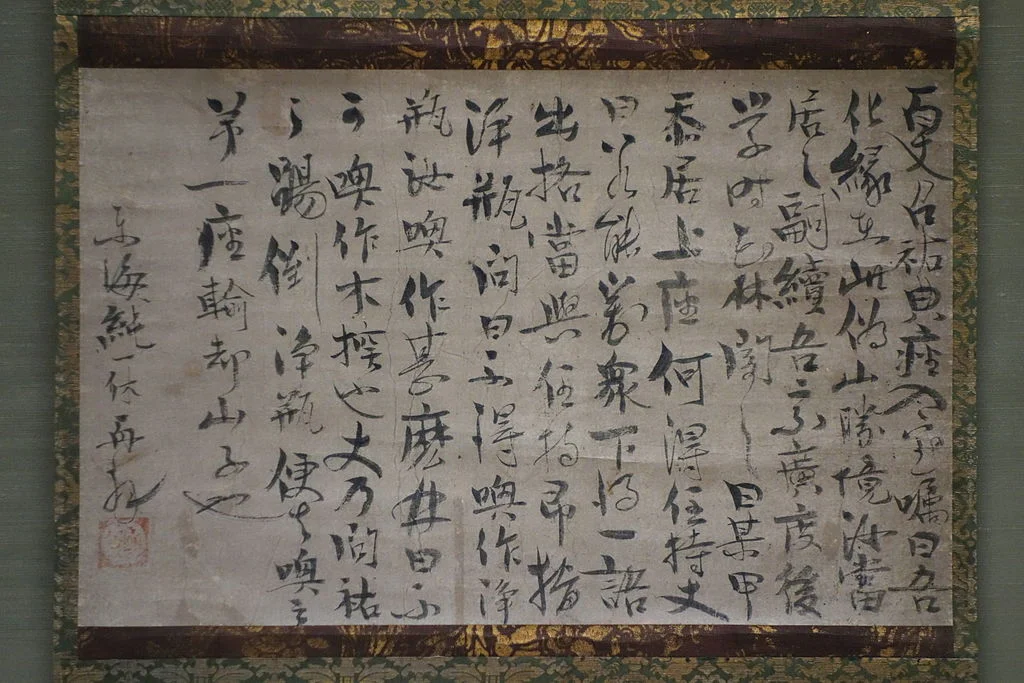 百丈召祐典座入室嘱曰吾
化縁在此潙山勝境汝當
居之嗣續吾宗廣度後
学時花林聞之曰某甲
忝居上座何得住持丈
曰若能對衆下得一語
出格當與住持即指
浄瓶問曰不得喚作浄
瓶汝喚作甚麼林曰不
可喚作木揬也丈乃問祐
々踢倒浄瓶便去喚云
第一座輸却山子也
東海純一休再拝